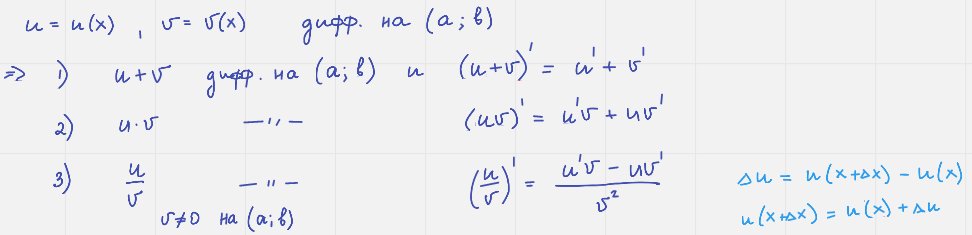 u = u(x) , v = v(x) дифф. на (a; b)
=> 1) u + v дифф. на (a; b) и (u+v)' = u' + v'
2) u · v —〃— (uv)' = u'v + uv'
3) u/v —〃— (u/v)' = (u'v - uv')/v²
v≠0 на (a; b)
Δu = u(x+Δx) - u(x)
u(x+Δx) = u(x) + Δu